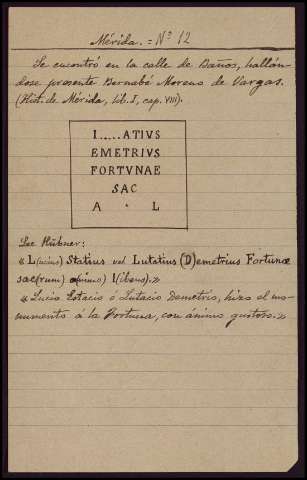 Mérida. = Nº 12
Se encontró en la calle de Baños, hallán-
dose presente Bernabé Moreno de Vargas.
(Hist. de Mérida, lib. I, cap. VIII).
I.....ATIVS
EMETRIVS
FORTVNAE
SAC
A . L
Lec Hübner:
« L(ucius) Statius vel Lutatius (D)emetrius Fortunæ
sac(rum) a(nimo) l(ibens). »
« Lucio Estacio ó Lutacio Demetrio, hizo el mo-
numento á la Fortuna, con ánimo gustoso. »